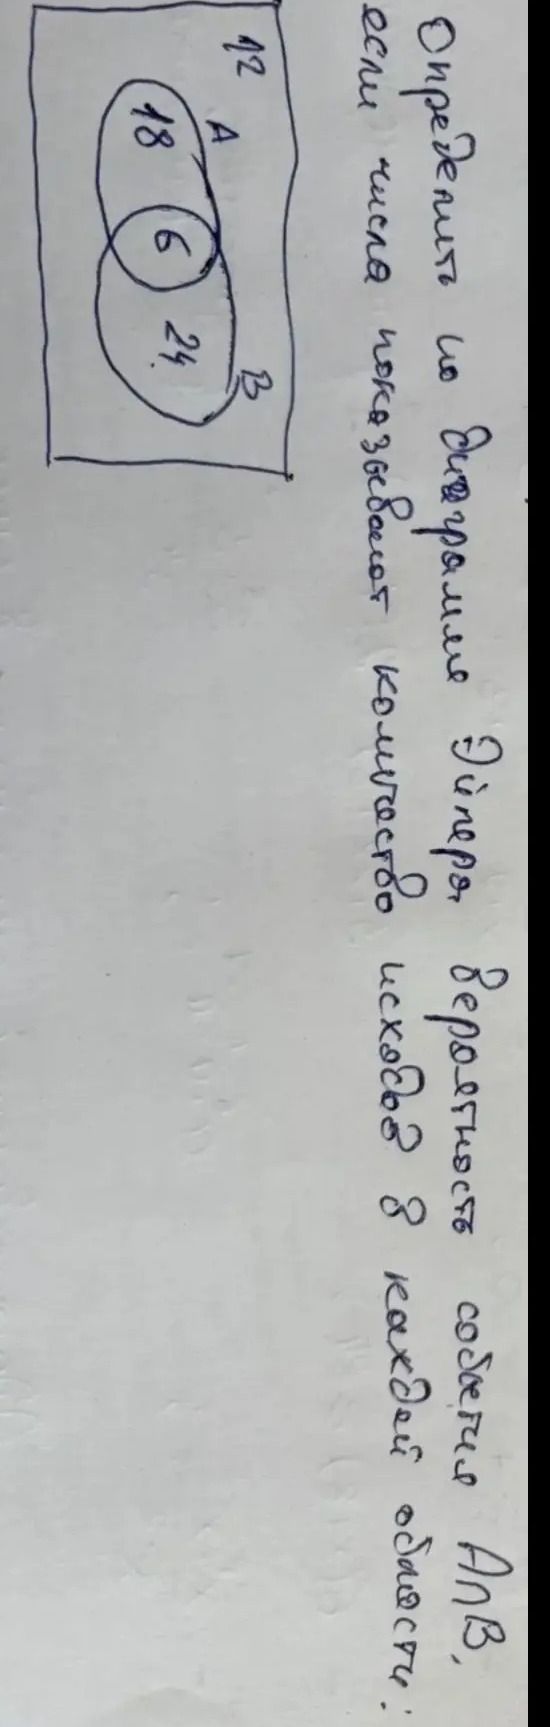 Определить по диаграмме Эйлера вероятность события A∩B,
если числа показывают количество исходов в каждой области:
12
A
B
18 6 24